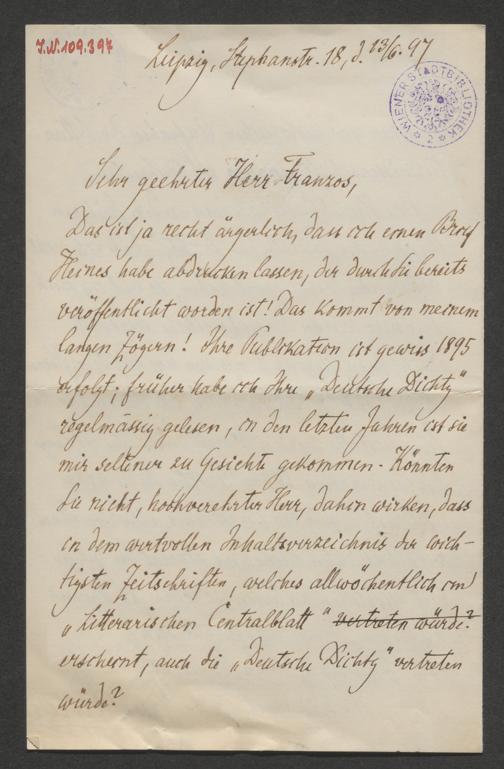 J.N. 109.397
Leipzig, Stephanstr. 18, d. 13/6. 97
WIENER STADTBIBLIOTHEK
2
Sehr geehrter Herr Franzos,
Das ist ja recht ärgerlich, dass ich einen Brief
Heines habe abdrucken lassen, der durch Sie bereits
veröffentlicht worden ist! Das kommt von meinem
langen Zögern! Ihre Publikation ist gewiss 1895
erfolgt; früher habe ich Ihre „Deutsche Dichtg"
regelmässig gelesen, in den letzten Jahren ist sie
mir seltener zu Gesichte gekommen. Könnten
Sie nicht, hochverehrter Herr, dahin wirken, dass
in dem wertvollen Inhaltsverzeichnis der wich-
tigsten Zeitschriften, welches allwöchentlich im
„Litterarischen Centralblatt" vertreten würde?
erscheint, auch die „Deutsche Dichtg" vertreten
würde?